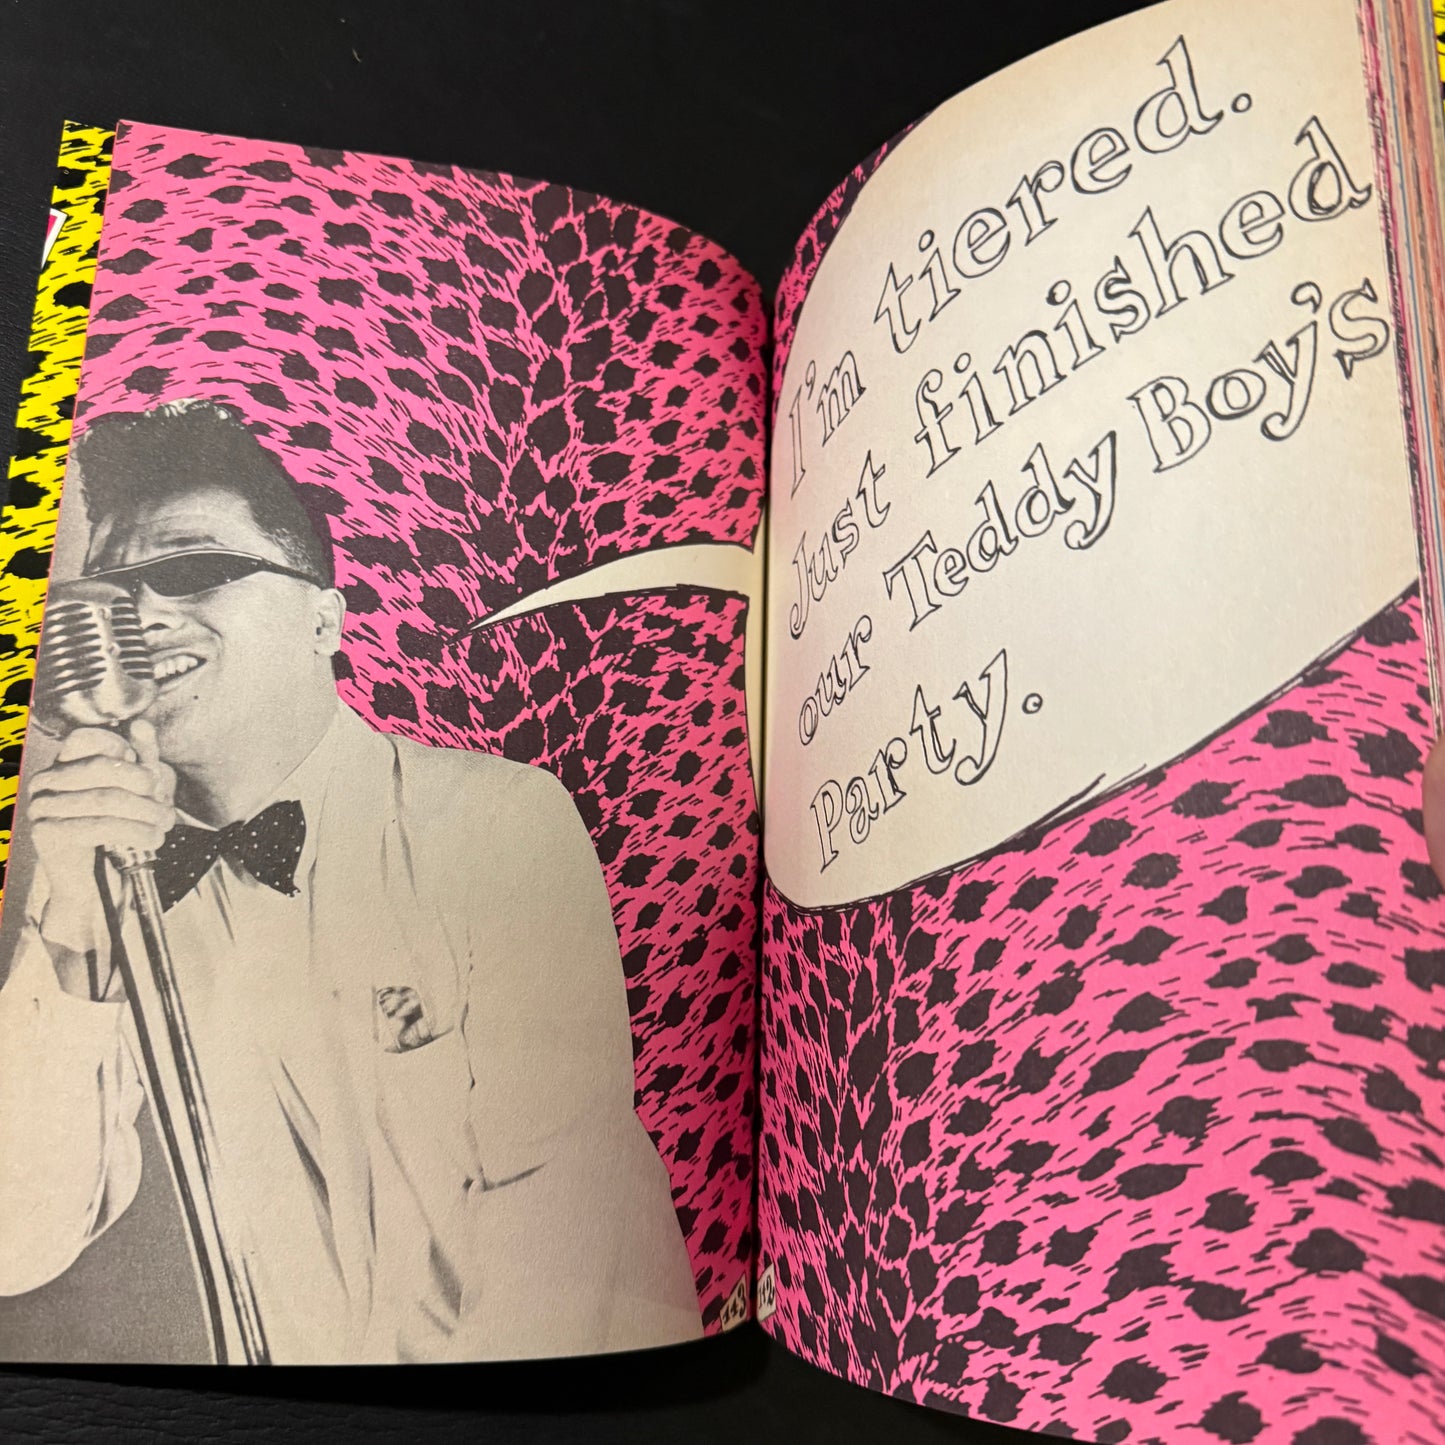 I'm tiered.
Just finished
our Teddy Boy's
Party.
113
112